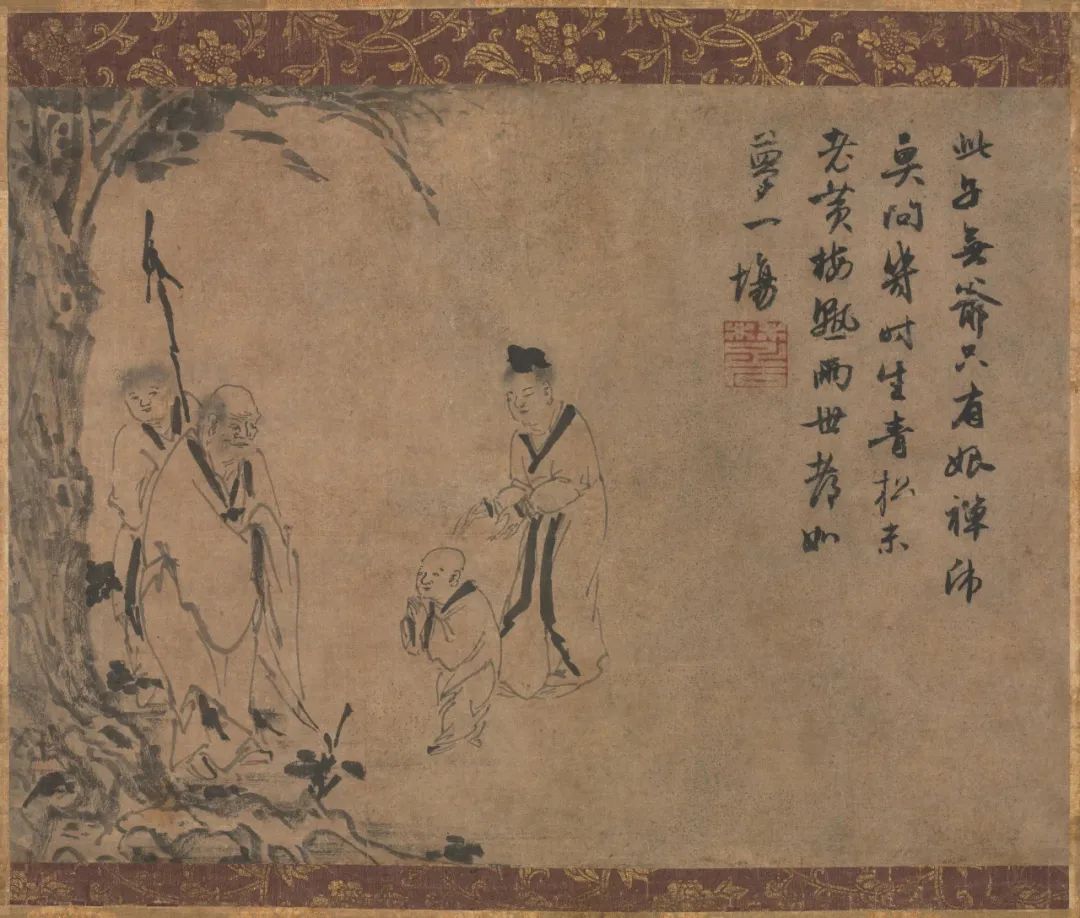 此子無爺只有娘禪師
莫問幾时生青松未
老黄梅熟兩世都如
夢一場